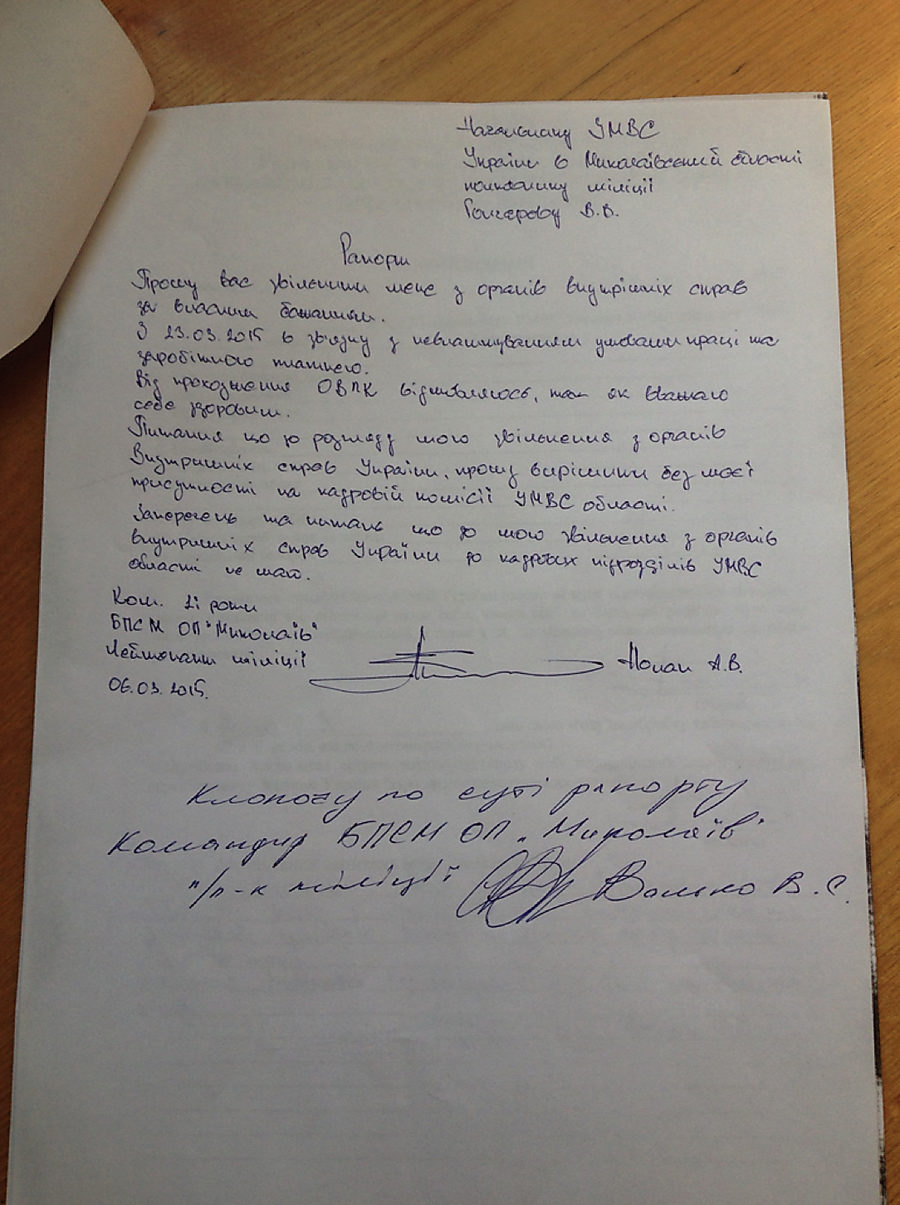 Начальнику УМВС
України в Миколаївській області
полковнику міліції
Гончарову В.В.
Рапорт
Прошу вас звільнити мене з органів внутрішніх справ
за власним бажанням.
З 23.03.2015 в звязку з невлаштуванням умовами праці та
заробітною платнею.
Від проходження ОВЛК відмовляюсь, так як вважаю
себе здоровим.
Питання що до розгляду мого звільнення з органів
Внутришніх справ України, прошу вирішити без моєї
присутності на кадровій комісії УМВС області.
Заперечень та питань що до мого звільнення з органів
внутришніх справ України до кадрових підрозділів УМВС
області не маю.
Ком. 1ї роти
БПСМ ОП "Миколаїв"
Лейтенант міліції
Попан А.В.
06.03.2015.
Клопочу по суті рапорту
Командир БПСМ ОП „Миколаїв"
п/п-к міліції
В. С.